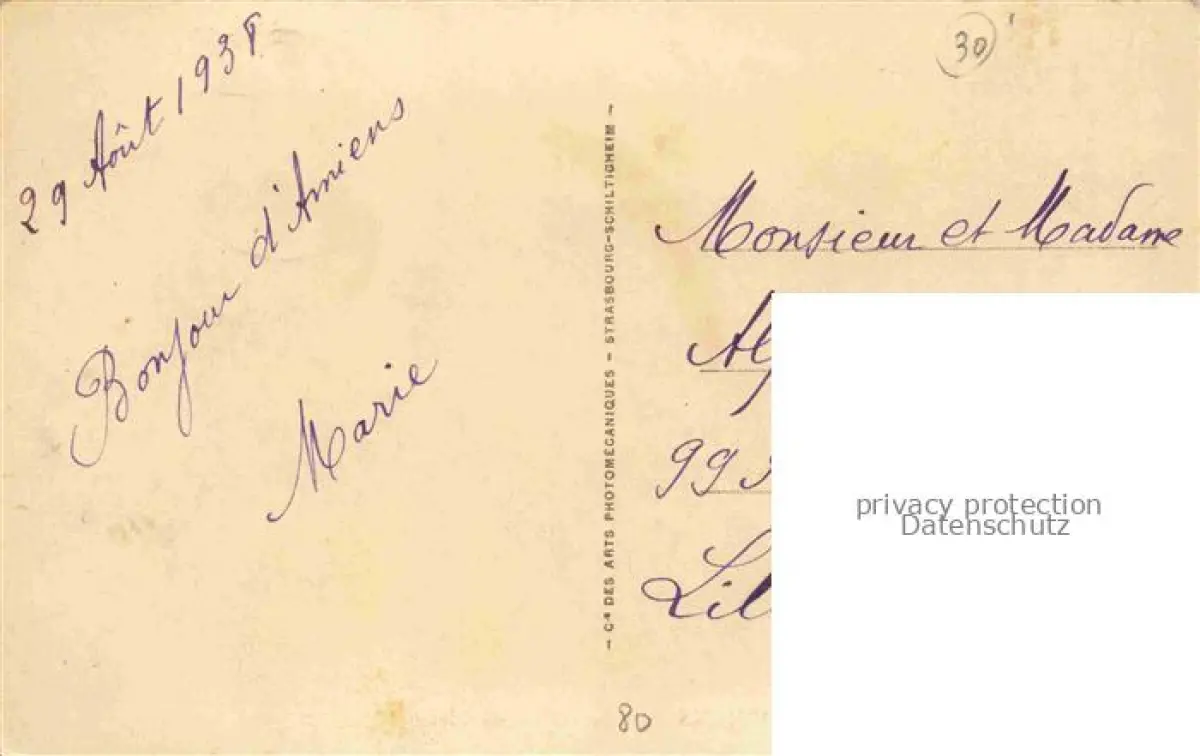 29 Août 1938
Bonjour d'Amiens
Marie
- Cie DES ARTS PHOTOMÉCANIQUES - STRASBOURG-SCHILTIGHEIM -
30
Monsieur et Madame
99
Lil
privacy protection
Datenschutz
80